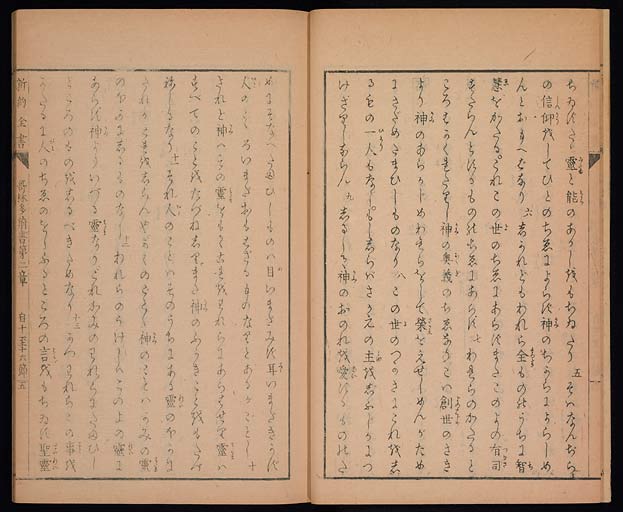 靈と能のあらはれをもちゐたり 五 そはなんぢら
の信仰をしてひとのちゑによらず神のちからによらしめ
んとおもへばなり 六 されどもわれら全ものゝうちに智
慧をかたるこれこの世のちゑにあらずまたこのよの有司
すたらんとするものゝちゑにあらず 七 われらのかたると
ころはかくれたりし神の奥義のちゑなりこは創世のさき
より神のあらかじめわれらをして榮をえせしめんがため
にさだめたまひしものなり 八 この世のつかさにこれを志
るもの一人もなしもししらばさかえの主を
けざりしならん 九 神のおのれを愛するものゝた
めにそなへたまひしものは目いまだみず耳いまだきかず
人のこゝろいまだおもはざるものなりとあるがごとし 十
されど神はこの靈をもてこれをわれらにあらはせり靈は
すべてのことをたづね神のふかきことをもたづ
ねしるなり 十一 それ人のことはそのうちにある靈のほかに
たれかこれをしらんやかくのごとく神のことはかみの靈
のほかにしるものなし 十二 われらのうけしはこのよの靈に
あらず神よりいづる靈なりこれかみのわれらにたまひし
ところのものをしるべきためなり 十三 かつわれらこの事を
かたるに人のちゑのをしふるところの言をもちゐず聖靈
新約全書 哥林多前書第二章 自十至十六節 五